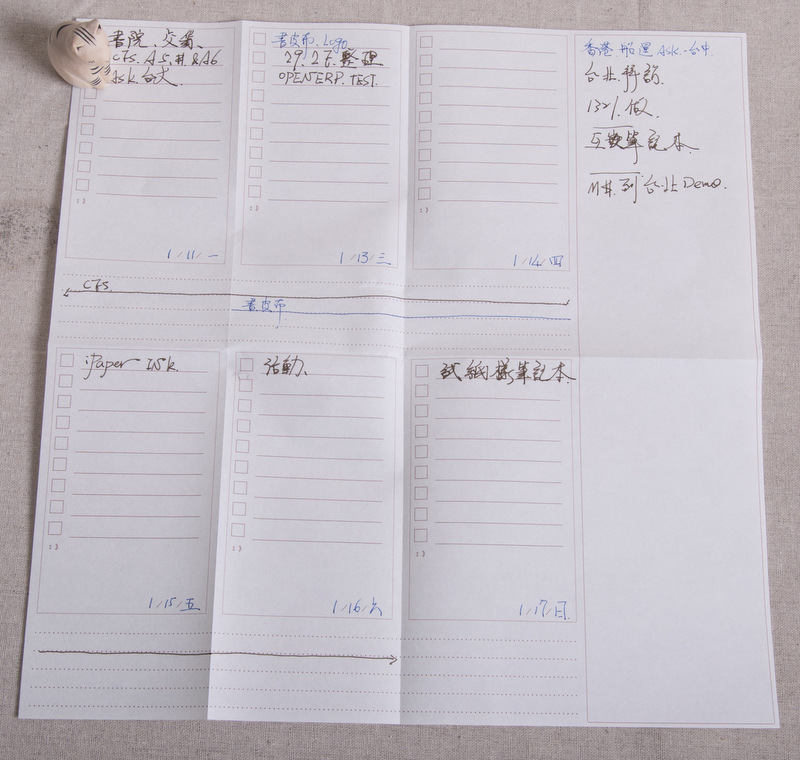 書院、交萄、
CFS. A5.井&A6
Ask.台大
1/11/一
書皮布、Logo
29.27.整理
OPENERP. TEST.
1/13/三
1/14/四
香港.船運 Ask.-台中
台北.拜訪.
132%.做.
筆記本.
M井.到台北Demo.
CFS.
書皮布
iPaper Ink.
1/15/五
活動、
1/16/六
試紙樣筆記本.
1/17/日